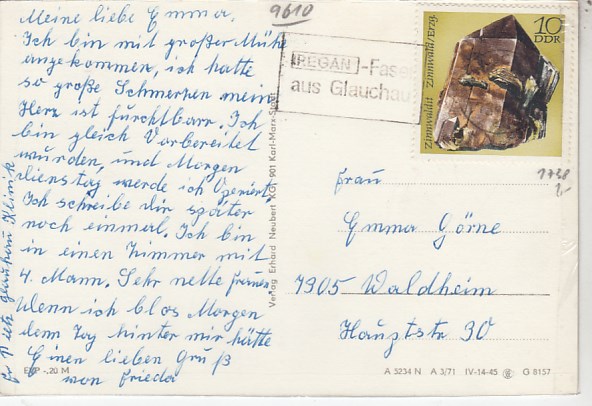 Meine liebe Emma.
Ich bin mit großer Mühe
angekommen, ich hatte
so große Schmerzen mein
Herz ist furchtbarr. Ich
bin gleich Vorbereitet
wurden, und Morgen
dienstag werde ich Operiert.
Ich schreibe dir später
noch einmal. Ich bin
in einen Zimmer mit
4. Mann. Sehr nette frauen.
Wenn ich blos Morgen
dem Tag hinter mir hätte
Einen lieben Gruß
von Frieda
Glauchau Klinik
EVP -,20 M
Verlag Erhard Neubert KG, 901 Karl-Marx-Stadt
9610
REGAN -Faser
aus Glauchau
10
DDR
Zinnwaldit Zinnwald/Erzg.
Frau
Emma Görne
7905 Waldheim
Hauptstr 30
A 5234 N A 3/71 IV-14-45 G 8157